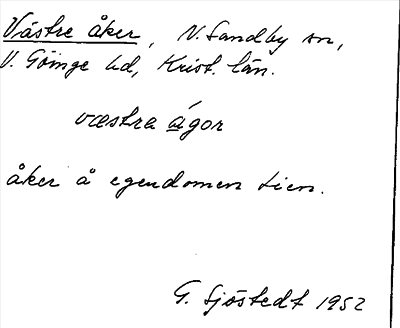 Västre åker, N. Sandby sn,
V. Göinge hd, Krist. län.
væstra ágor
åker å egendomen Lien.
G. Sjöstedt 1952